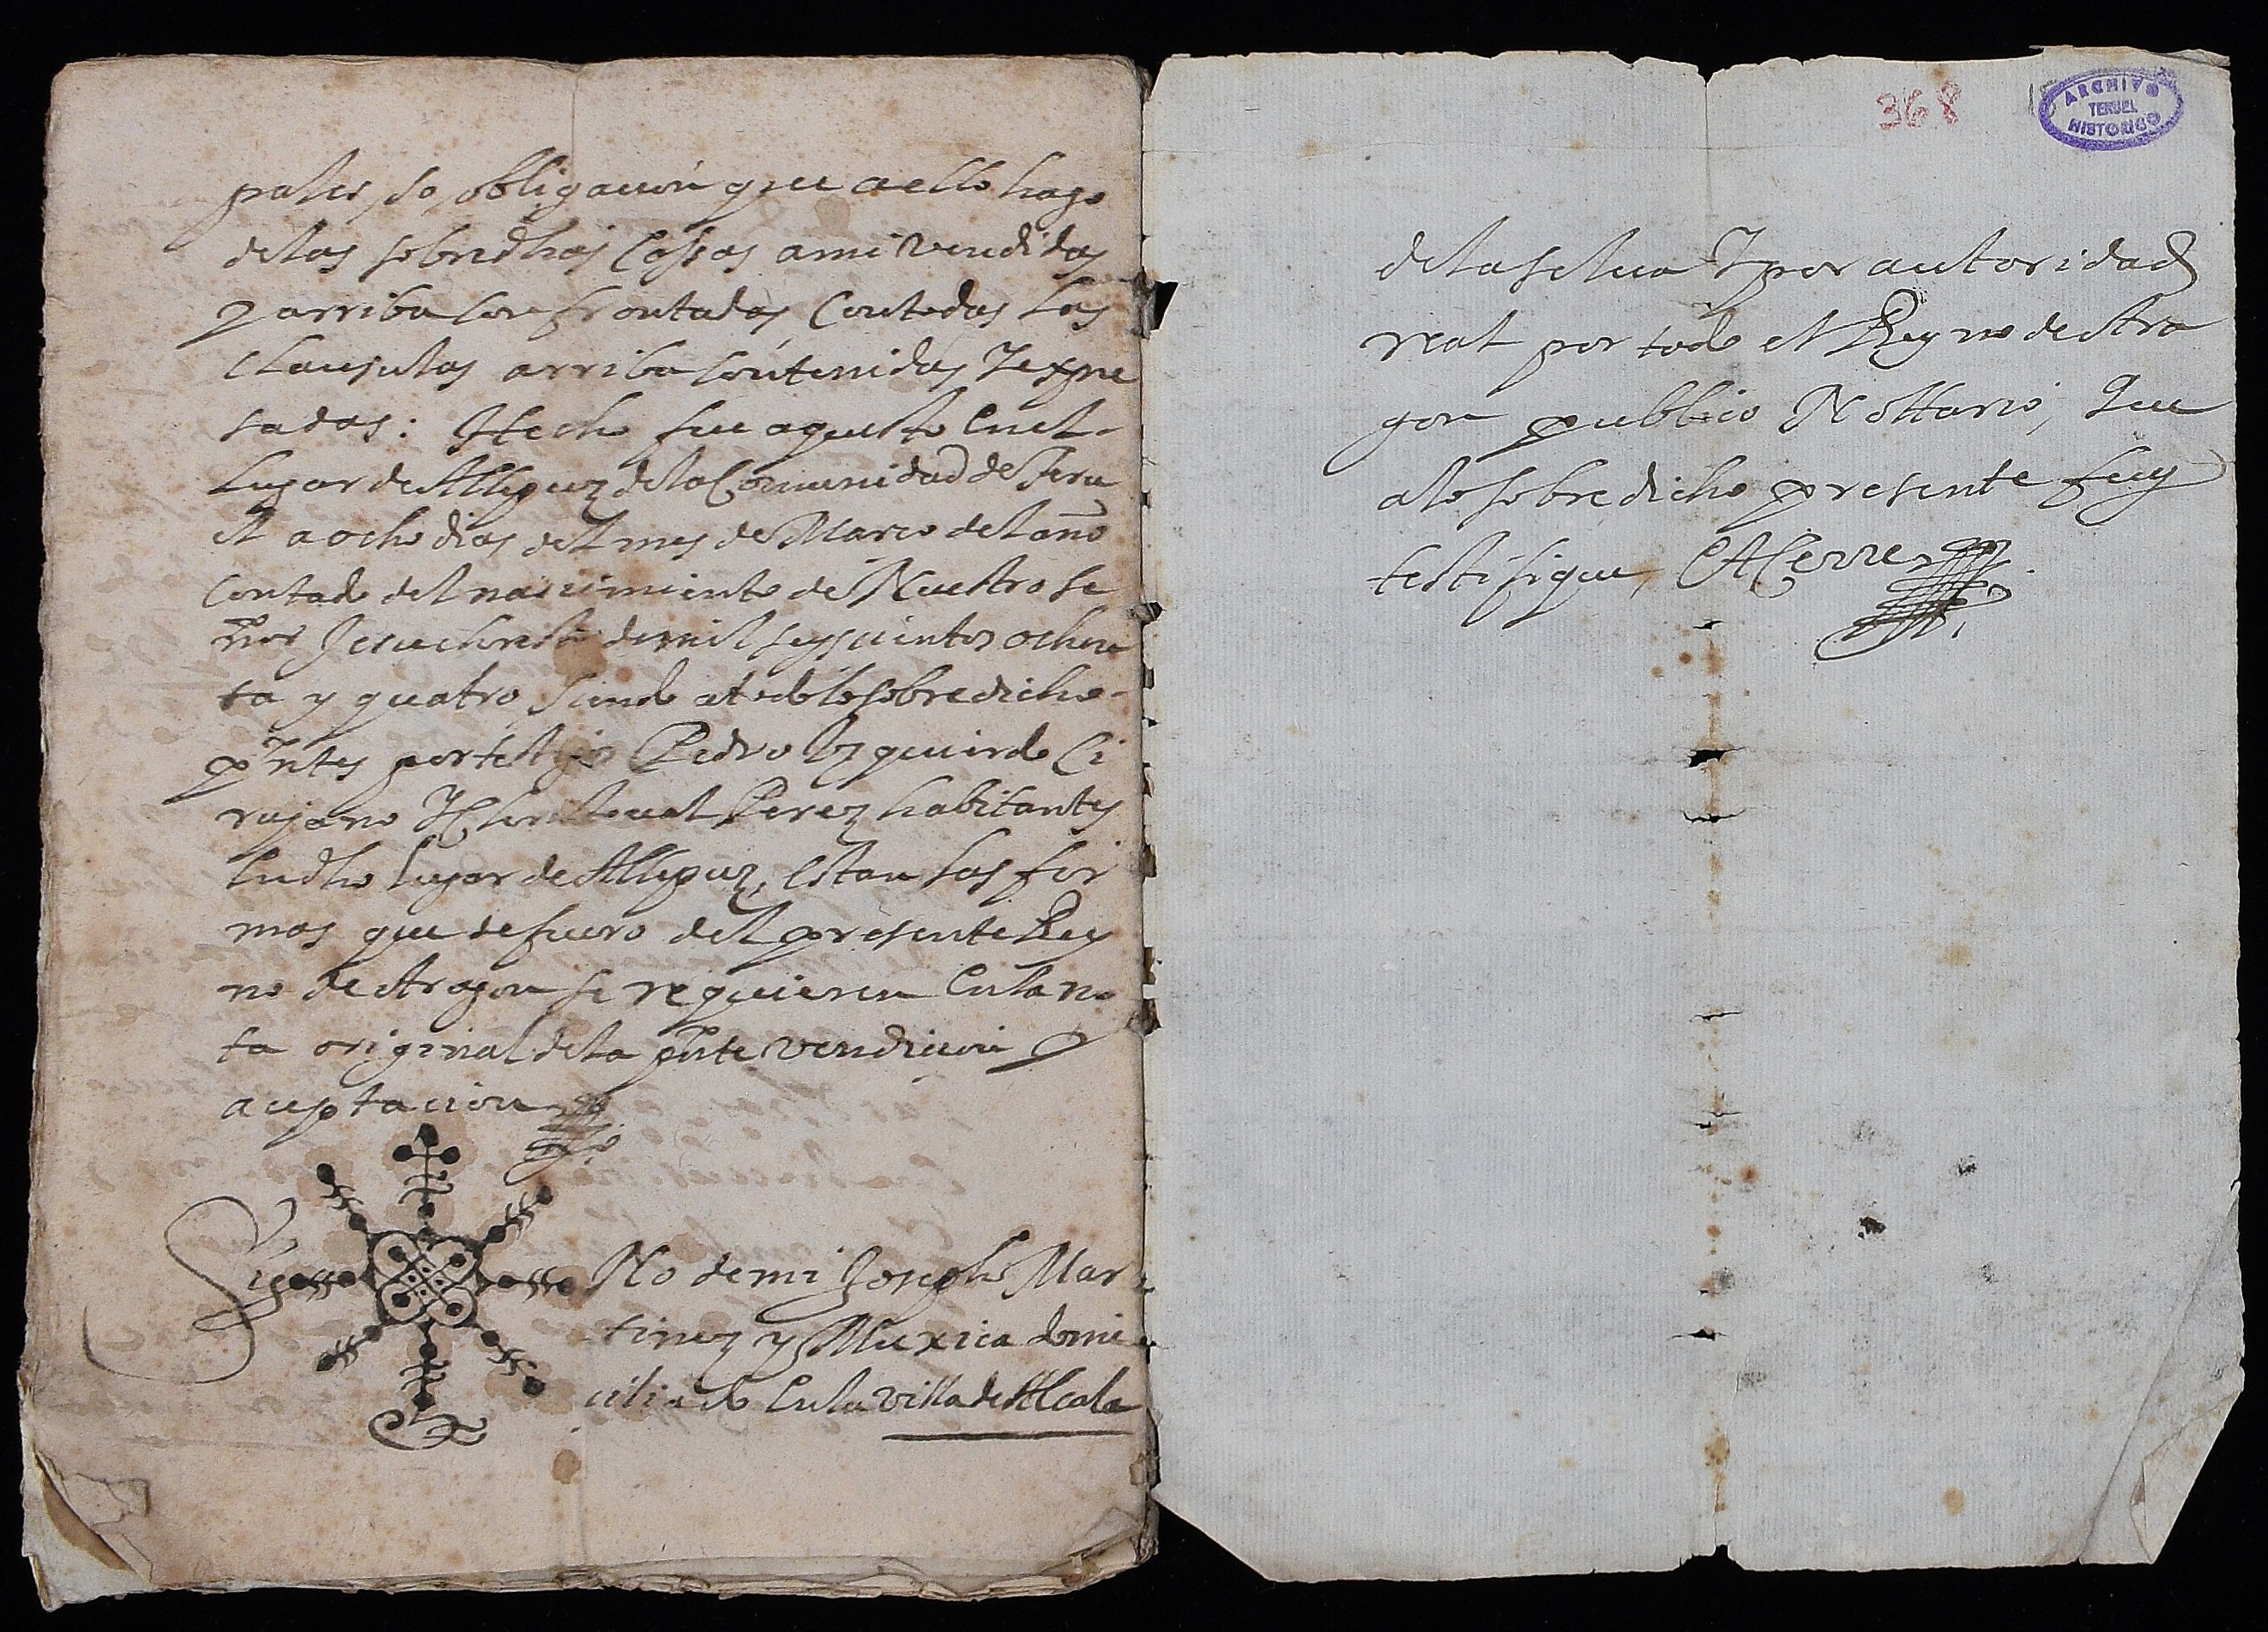 pales, so obligacion que a ello hago
de las sobredhas Cossas a mi vendidas
y arriba confrontadas, Con todas las
clausulas arriba contenidas Y expre
sadas: Hecho fue aquesto En el
Lugar de Allepuz de la Comunidad de Teru
el a ocho dias del mes de Marco del año
contado del nacimiento de Nuestro Se
ñor Jesuchristo de mil seyscientos ochen
ta y quatro, siendo a todo lo sobredicho
pntes por testigos Pedro Yzquierdo Ci
rujano Y Christoual Perez habitantes
En dho lugar de Allepuz, Estan las fir
mas que de fuero del presente Rey
no de Aragon se requieren En la no
ta original de la pnte vendicion y
aceptacion
Sig No de mi Joseph Mar
tinez y Muxica domi
ciliado En la villa de Alcala
368
ARCHIVO
TERUEL
HISTORICO
de la selua Y por autoridad
real por todo el Reyno de Ara
gon publico Nottario, Que
a lo sobredicho presente fuy
testifique, Et Cerre